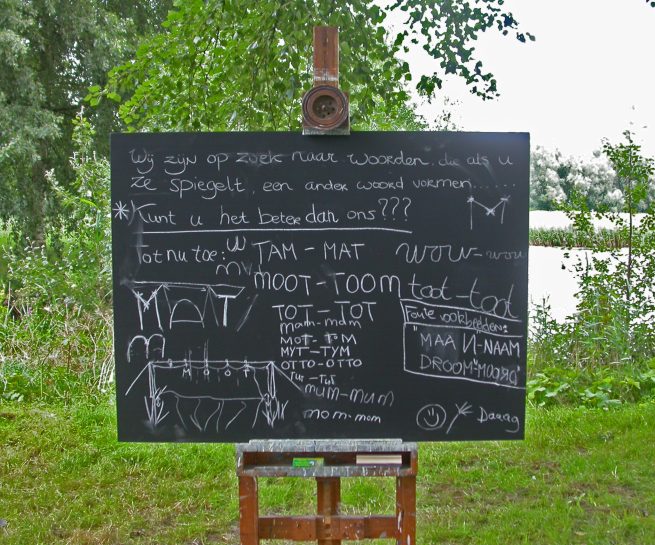 Wij zijn op zoek naar woorden. die als u
ze spiegelt, een ander woord vormen......
*Kunt u het beter dan ons???
M
Tot nu toe: W TAM - MAT wow - wow
MOOT - TOOM toot - toot
MAT
TOT - TOT
mam - mam
MOT - TOM
MYT - TYM
OTTO - OTTO
TUT - TUT
mum - mum
mom - mom
Foute voorbeelden:
"MAAN - NAAM
DROOM - MOORD"
Daaag